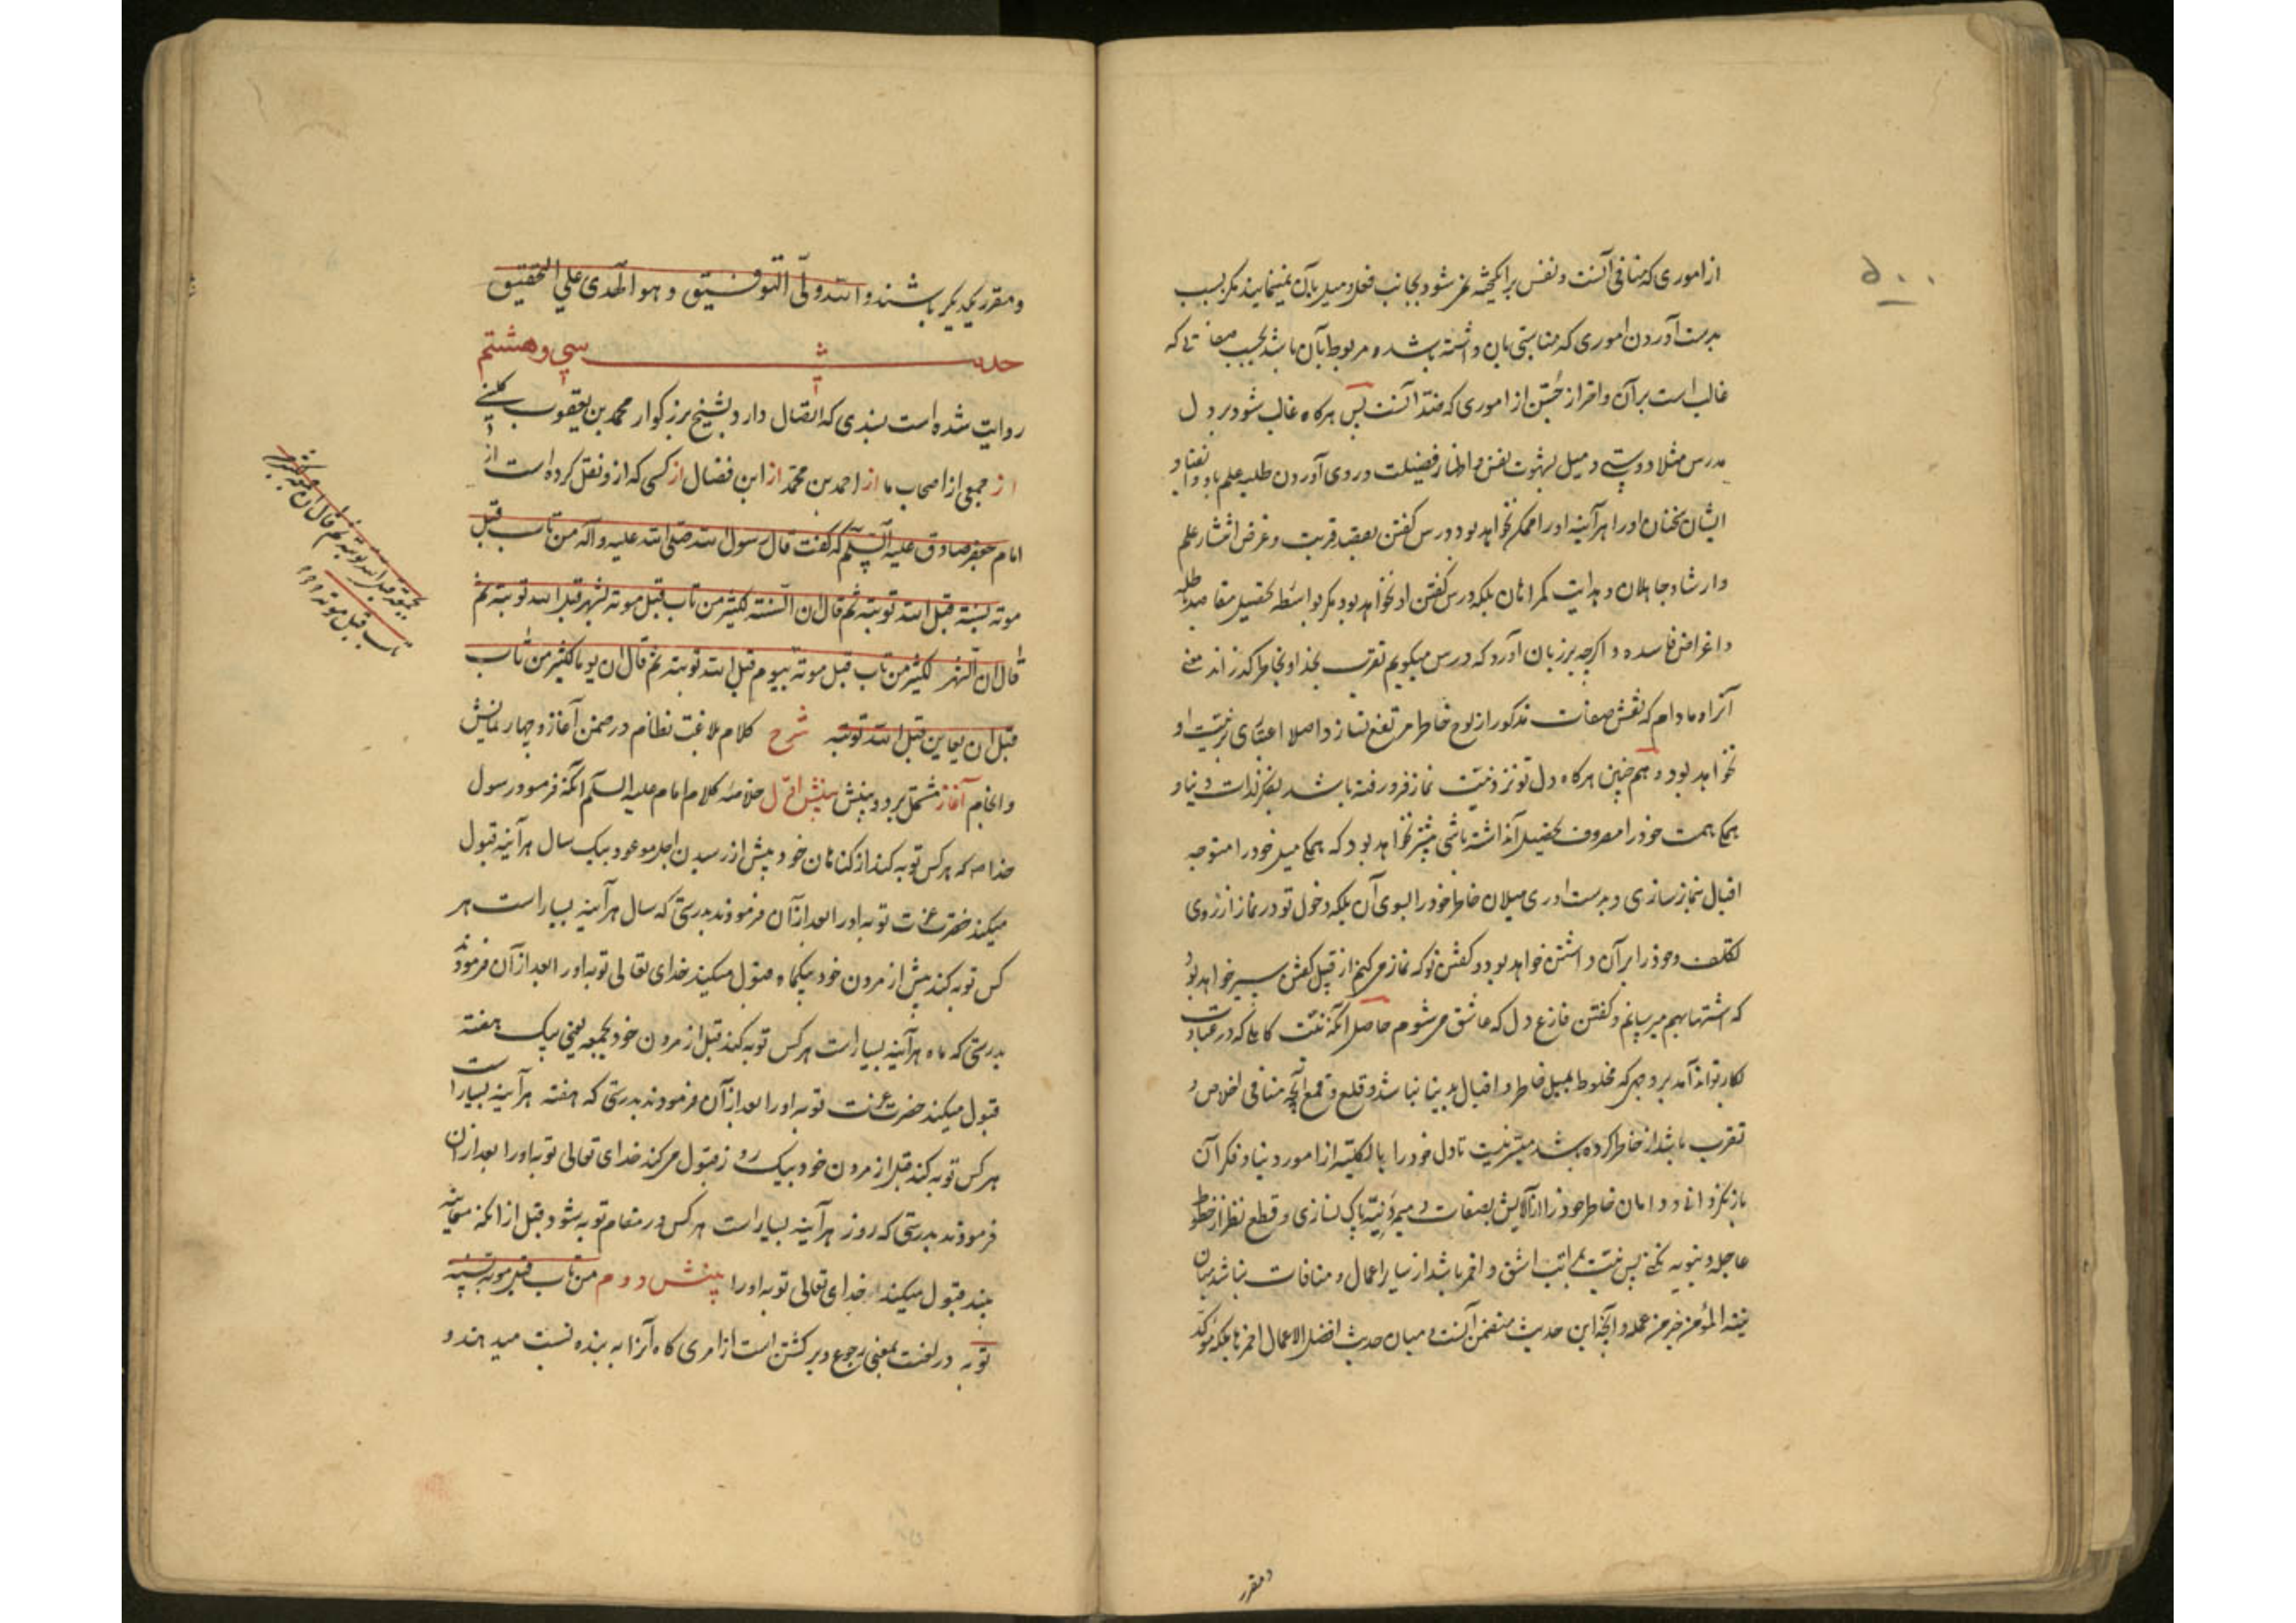 ۵۰۰
از اموری که منافی آنست و نفس برانگیخته نمی شود بجانب فعل و میل بآن نمینماید مگر بسبب
بدست آوردن اموری که مناسبتی بآن داشته باشد و مربوط بآن باشد بحسب صفاتی که
غالب است بر آن و احتراز جستن از اموری که ضد آنست پس هرگاه غالب شود بر دل
مدرس مثلا دوستی و میل بشهوت نفس و اظهار فضیلت و روی آوردن طلبه علم باو و انقیاد
ایشان سخنان او را هر آینه او را ممکن نخواهد بود درس گفتن بقصد قربت و غرض انتشار علم
و ارشاد جاهلان و هدایت گمراهان بلکه درس گفتن او نخواهد بود مگر بواسطه تحصیل مقاصد
و اغراض فاسده و اگرچه بر زبان آورد که درس میگویم تقرب بخدا و بخاطر گذراند معنی
آنرا و مادام که نقش صفات مذکور از لوح خاطر مرتفع نسازد اصلا اعتباری نیت او
نخواهد بود و هم چنین هرگاه دل تو نزد نیت نماز فرو رفته باشد بفکر لذات دنیا و
همگی همت خود را مصروف تحصیل آن داشته باشی میسر نخواهد بود که همگی میل خود را متوجه
اقبال بنماز سازی و بدست آوری میلان خاطر خود را بسوی آن بلکه دخول تو در نماز از روی
تکلف و خود را بر آن داشتن خواهد بود و گفتن تو که نماز میکنم از قبیل گفتن سیر خواهد بود
که اشتها بهم میرسانم و گفتن فارغ دل که عاشق میشوم حاصل آنکه نیت کاملی که در عبادت
بکار تواند آمد بر وجهی که مخلوط بمیل خاطر و اقبال بدنیا نباشد و قلع و قمع آنچه منافی اخلاص و
تقرب باشد از خاطر کرده باشد میسر نیست تا دل خود را بالکلیه از امور دنیا و فکر آن
باز نگردانی و دامان خاطر خود را از آلایش بصفات ذمیمه دنیه پاک نسازی و قطع نظر از حظوظ
عاجله دنیویه نکنی پس نیت بمراتب اشق و احمز باشد از سایر اعمال و منافات نباشد میان
نیة المؤمن خیر من عمله و آنچه این حدیث متضمن آنست و میان حدیث افضل الاعمال احمزها بلکه مؤکد
و مقرر
و مقرر یکدیگر باشند والله ولی التوفیق و هو الهدی علی التحقیق
حدیث سی و هشتم
روایت شده است بسندی که اتصال دارد بشیخ بزرگوار محمد بن یعقوب کلینی
از جمعی از اصحاب ما از احمد بن محمد از ابن فضال از کسی که ازو نقل کرده است از
امام جعفر صادق علیه السلم که گفت قال رسول الله صلی الله علیه و آله من تاب قبل
موته بسنة قبل الله توبته ثم قال ان السنة لکثیر من تاب قبل موته بشهر قبل الله توبته ثم
قال ان الشهر لکثیر من تاب قبل موته بیوم قبل الله توبته ثم قال ان یوما لکثیر من تاب
قبل ان یعاین قبل الله توبته شرح کلام بلاغت نظام در ضمن آغاز و چهار نمایش
و انجام آغاز مشتمل بر دو بینش بینش اول خلاصه کلام امام علیه السلم آنکه فرمود رسول
خدا ص که هر کس توبه کند از گناهان خود پیش از رسیدن اجل موعود بیک سال هر آینه قبول
میکند حضرت عزت توبه او را بعد از آن فرمودند بدرستی که سال هر آینه بسیار است هر
کس توبه کند پیش از مردن خود بیکماه قبول میکند خدای تعالی توبه او را بعد از آن فرمودند
بدرستی که ماه هر آینه بسیار است هر کس توبه کند قبل از مردن خود بجمعه یعنی بیک هفته
قبول میکند حضرت عزت توبه او را بعد از آن فرمودند بدرستی که هفته هر آینه بسیار است
هر کس توبه کند قبل از مردن خود بیک روز قبول میکند خدای تعالی توبه او را بعد از آن
فرمودند بدرستی که روز هر آینه بسیار است هر کس در مقام توبه شود قبل از آنکه معاینه
بیند قبول میکند خدای تعالی توبه او را بینش دوم من تاب قبل موته بسنة
توبه در لغت بمعنی رجوع و برگشتن است از امری گاه آنرا به بنده نسبت میدهند و
بجمعة قبل الله توبته ثم قال ان جمعة لکثیر من
تاب قبل موته